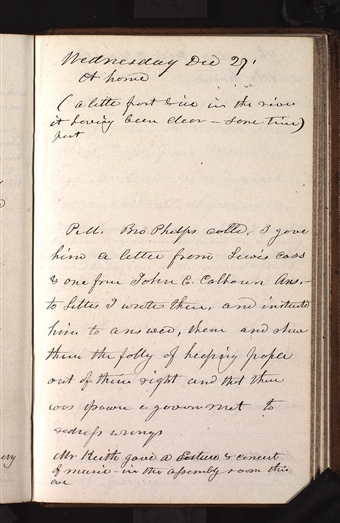 Wednesday Dec 27.
At home
(a little frost & ice in the river
it having been clear - some time)
past
P.M. Bro Phelps called, I gave
him a letter from Lewis Cass
& one from John C. Calhoun Ans.-
to Letters I wrote them, and instructed
him to answer, them and shew
them the folly of keeping people
out of their right and that there
was power in government to
redress wrongs
Mr Keith gave a Lecture & concert
of music - in the assembly room this
eve